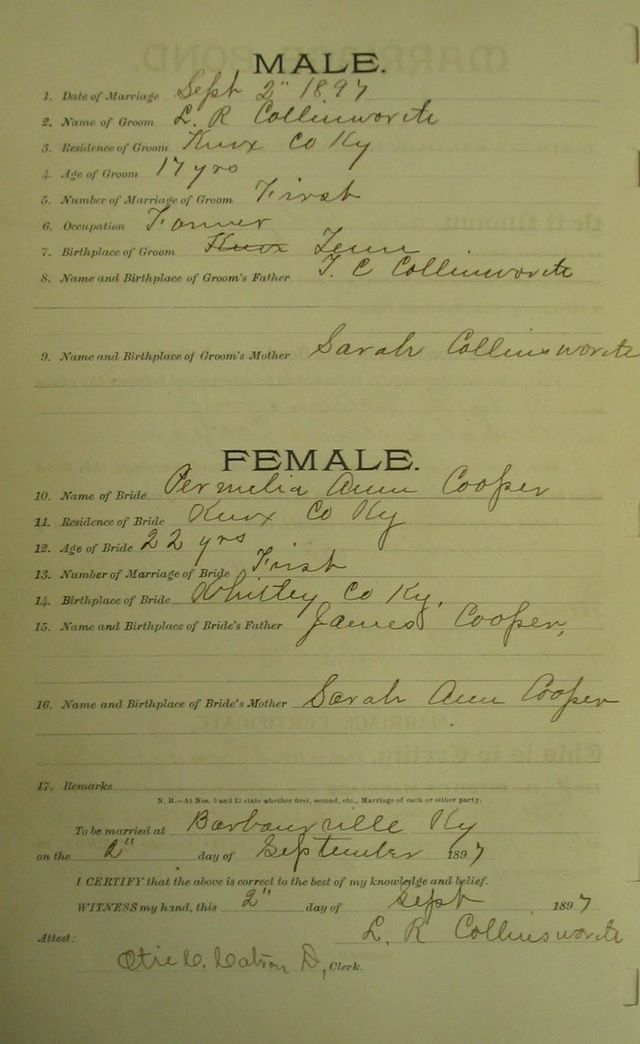 MALE.
1. Date of Marriage Sept 2" 1897
2. Name of Groom L. R Collinsworth
3. Residence of Groom Knox Co Ky
4. Age of Groom 17 yrs
5. Number of Marriage of Groom First
6. Occupation Farmer
7. Birthplace of Groom Knox Tenn
8. Name and Birthplace of Groom's Father T. C Collinsworth
9. Name and Birthplace of Groom's Mother Sarah Collinsworth
FEMALE.
10. Name of Bride Permelia Ann Cooper
11. Residence of Bride Knox Co Ky
12. Age of Bride 22 yrs
13. Number of Marriage of Bride First
14. Birthplace of Bride Whitley Co Ky.
15. Name and Birthplace of Bride's Father James Cooper,
16. Name and Birthplace of Bride's Mother Sarah Ann Cooper
17. Remarks
N. B.—At Nos. 5 and 13 state whether first, second, etc., Marriage of each or either party.
To be married at Barbourville Ky
on the 2" day of September 1897
I CERTIFY that the above is correct to the best of my knowledge and belief.
WITNESS my hand, this 2" day of Sept 1897
L. R Collinsworth
Attest:
Clerk.